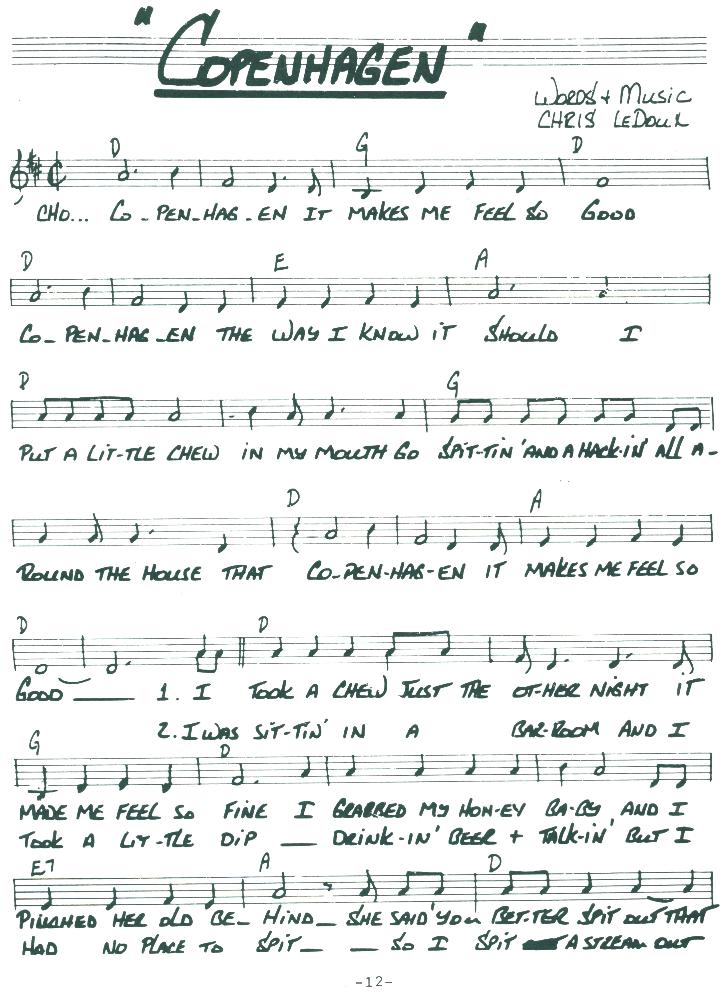 "COPENHAGEN"
WORDS + MUSIC
CHRIS LEDOUX
D G D
CHO... CO-PEN-HAG-EN IT MAKES ME FEEL SO GOOD
D E A
CO-PEN-HAG-EN THE WAY I KNOW IT SHOULD I
D G
PUT A LIT-TLE CHEW IN MY MOUTH GO SPIT-TIN' AND A HACK-IN' ALL A-
D A
ROUND THE HOUSE THAT CO-PEN-HAG-EN IT MAKES ME FEEL SO
D D
GOOD 1. I TOOK A CHEW JUST THE OT-HER NIGHT IT
2. I WAS SIT-TIN' IN A BAR-ROOM AND I
G D
MADE ME FEEL SO FINE I GRABBED MY HON-EY BA-BY AND I
TOOK A LIT-TLE DIP DRINK-IN' BEER + TALK-IN' BUT I
E7 A D
PINCHED HER OLD BE-HIND SHE SAID "YOU BET-TER SPIT OUT THAT
HAD NO PLACE TO SPIT SO I SPIT A STREAM OUT
-12-